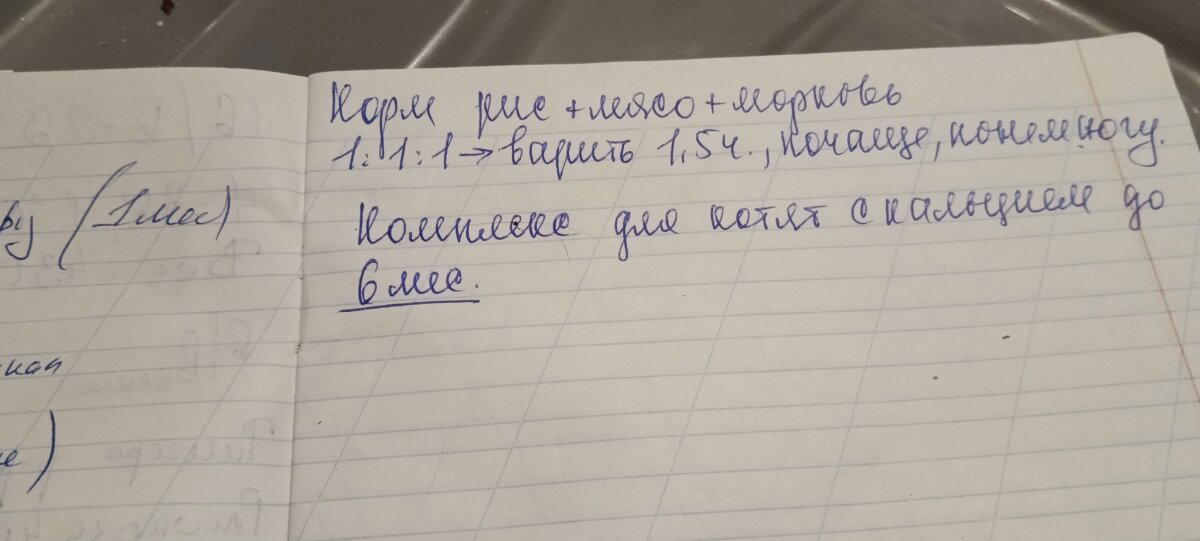 Корм рис + мясо + морковь
1:1:1 → варить 1,5ч., почаще, понемногу.
(1 мес)
Комплекс для котят с кальцием до
6 мес.